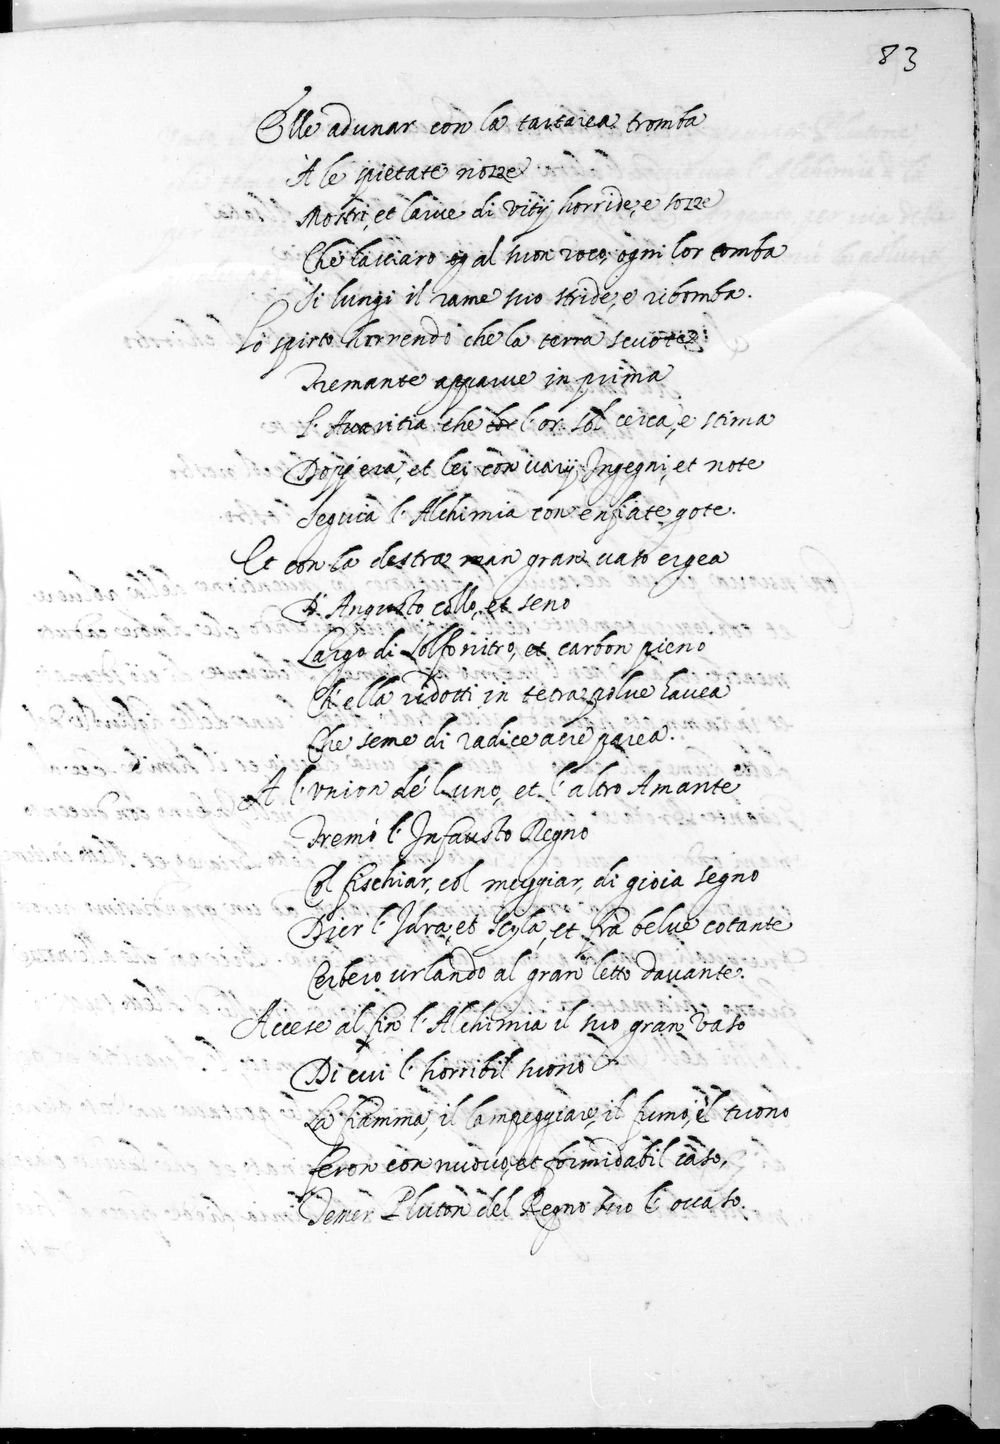 83
Elle adunar con la tartarea tromba
A le spietate nozze
Mostri, et larve di vitij horride, e sozze
Che lasciaro al suon roco, ogni lor tomba
Si lungi il rame suo stride, e ribomba.
Lo spirto horrendo che la terra scuote
Tremante apparve in prima
L'Avaritia che l'or sol cerca, e stima
Dopp' era, et lei con varij Ingegni, et note
Seguia l'Alchimia con enfiate gote.
Et con la destra man gran vaso ergea
D'Angusto collo, et seno
Largo di Solfo nitro, et carbon pieno
Ch'ella ridotti in tetra polve havea
Che seme di radice acre parea.
A l'union de l'uno, et l'altro Amante
Tremò l'Infausto Regno
Col fischiar, col muggiar, di gioia segno
Dier l'Idra, et Scyla, et fra belve cotante
Cerbero urlando al gran letto davante.
Accese al fin l'Alchimia il suo gran vaso
Di cui l'horribil suono
La fiamma, il lampeggiare, il fumo, e'l tuono
Feron con nuovo, et formidabil caso,
Temer Pluton del Regno suo l'occaso.